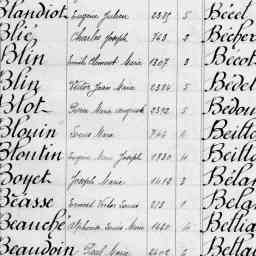 Blandiot Eugène Julien 2387 5 Bécel
Blié Charles Joseph 763 2 Bécher
Blin Émile Clément Marie 1307 3 Becot
Blin Victor Jean Marie 2304 5 Bédel
Blot Pierre Marie 2392 5 Bédou
Blouin Louis Marie 744 Beill
Bloutin Eugène Marie Joseph 1930 4 Beill
Boyet Joseph Marie 1412 3 Béla
Béasse Ernest Victor Louis 213 1 Bela
Beauché Alphonse Louis Marie 1620 4 Bellia
Beaudoin Paul Marie Bella